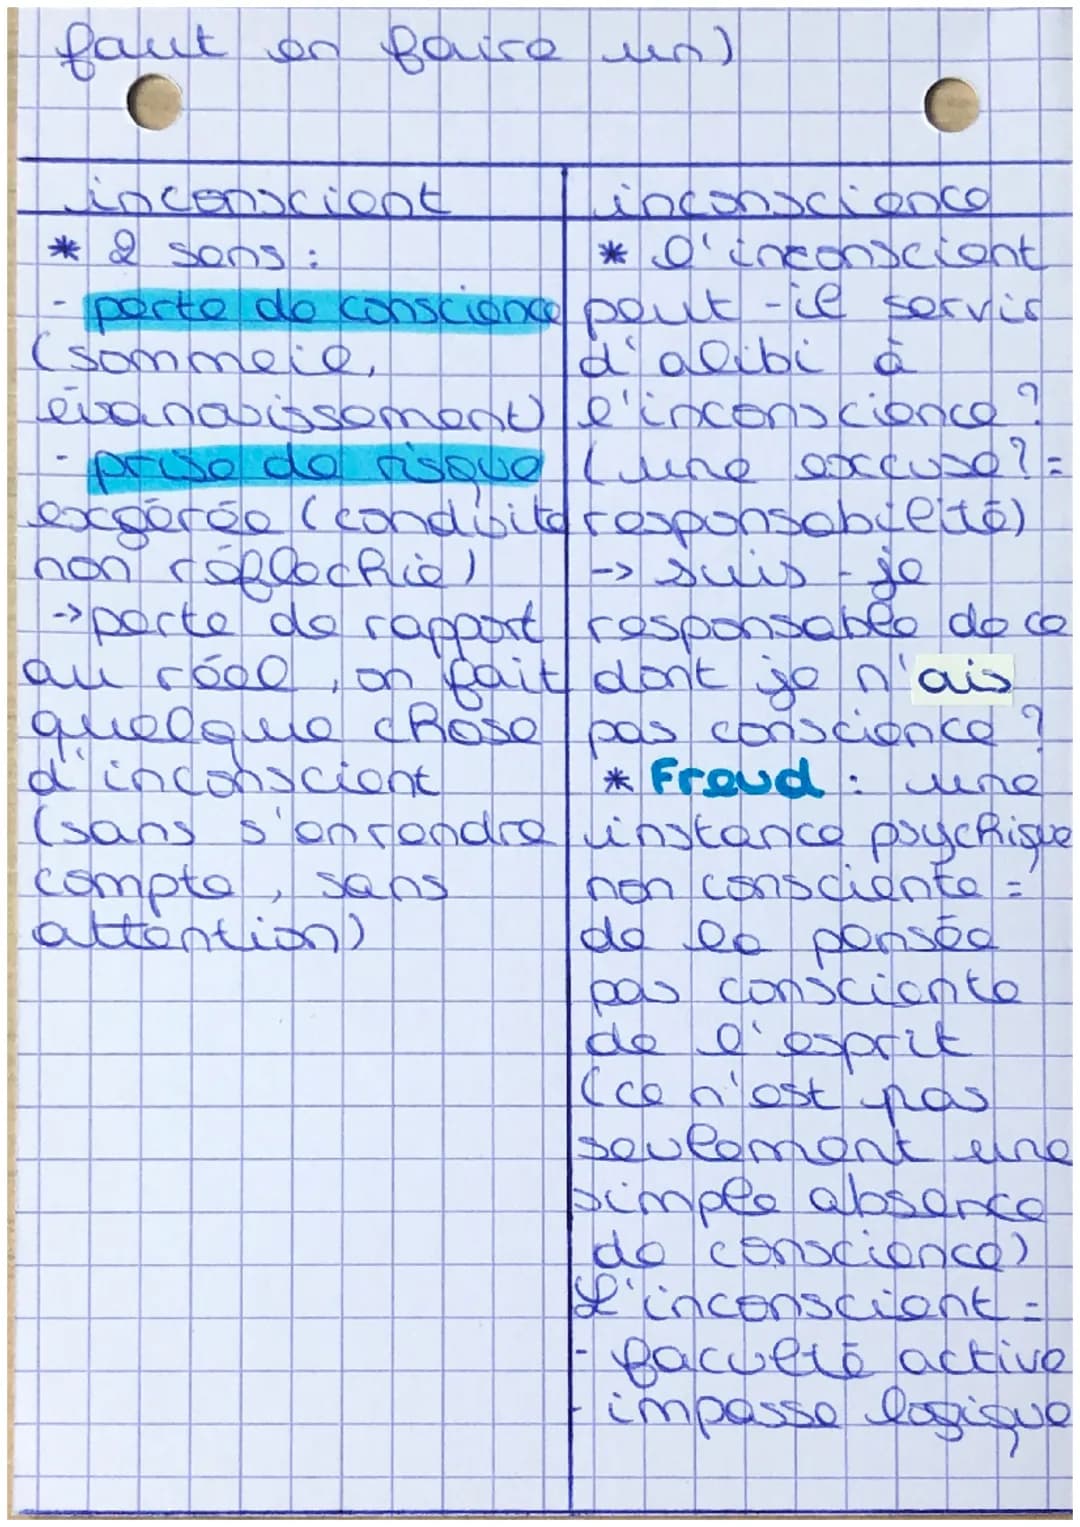 faut en faire un)
inconscient
* 2 sens :
- perte de conscience
(sommeil,
évanouissement)
- prise de risque
exgérée (condisite
non réflechie)
-> perte de rapport
au réel, on fait
quelque chose
d'inconscient
(sans s'en rendre
compte, sans
attention)
inconscience
* l'inconscient
peut-il servir
d'alibi à
l'inconscience ?
(une excuse ? =
responsabilité)
-> suis-je
responsable de ce
dont je n'ais
pas conscience ?
* Freud : une
instance psychique
non consciente =
de la pensée
pas consciente
de l'esprit
(ce n'est pas
seulement une
simple absence
de conscience)
L'inconscient =
- faculté active
- impasse logique